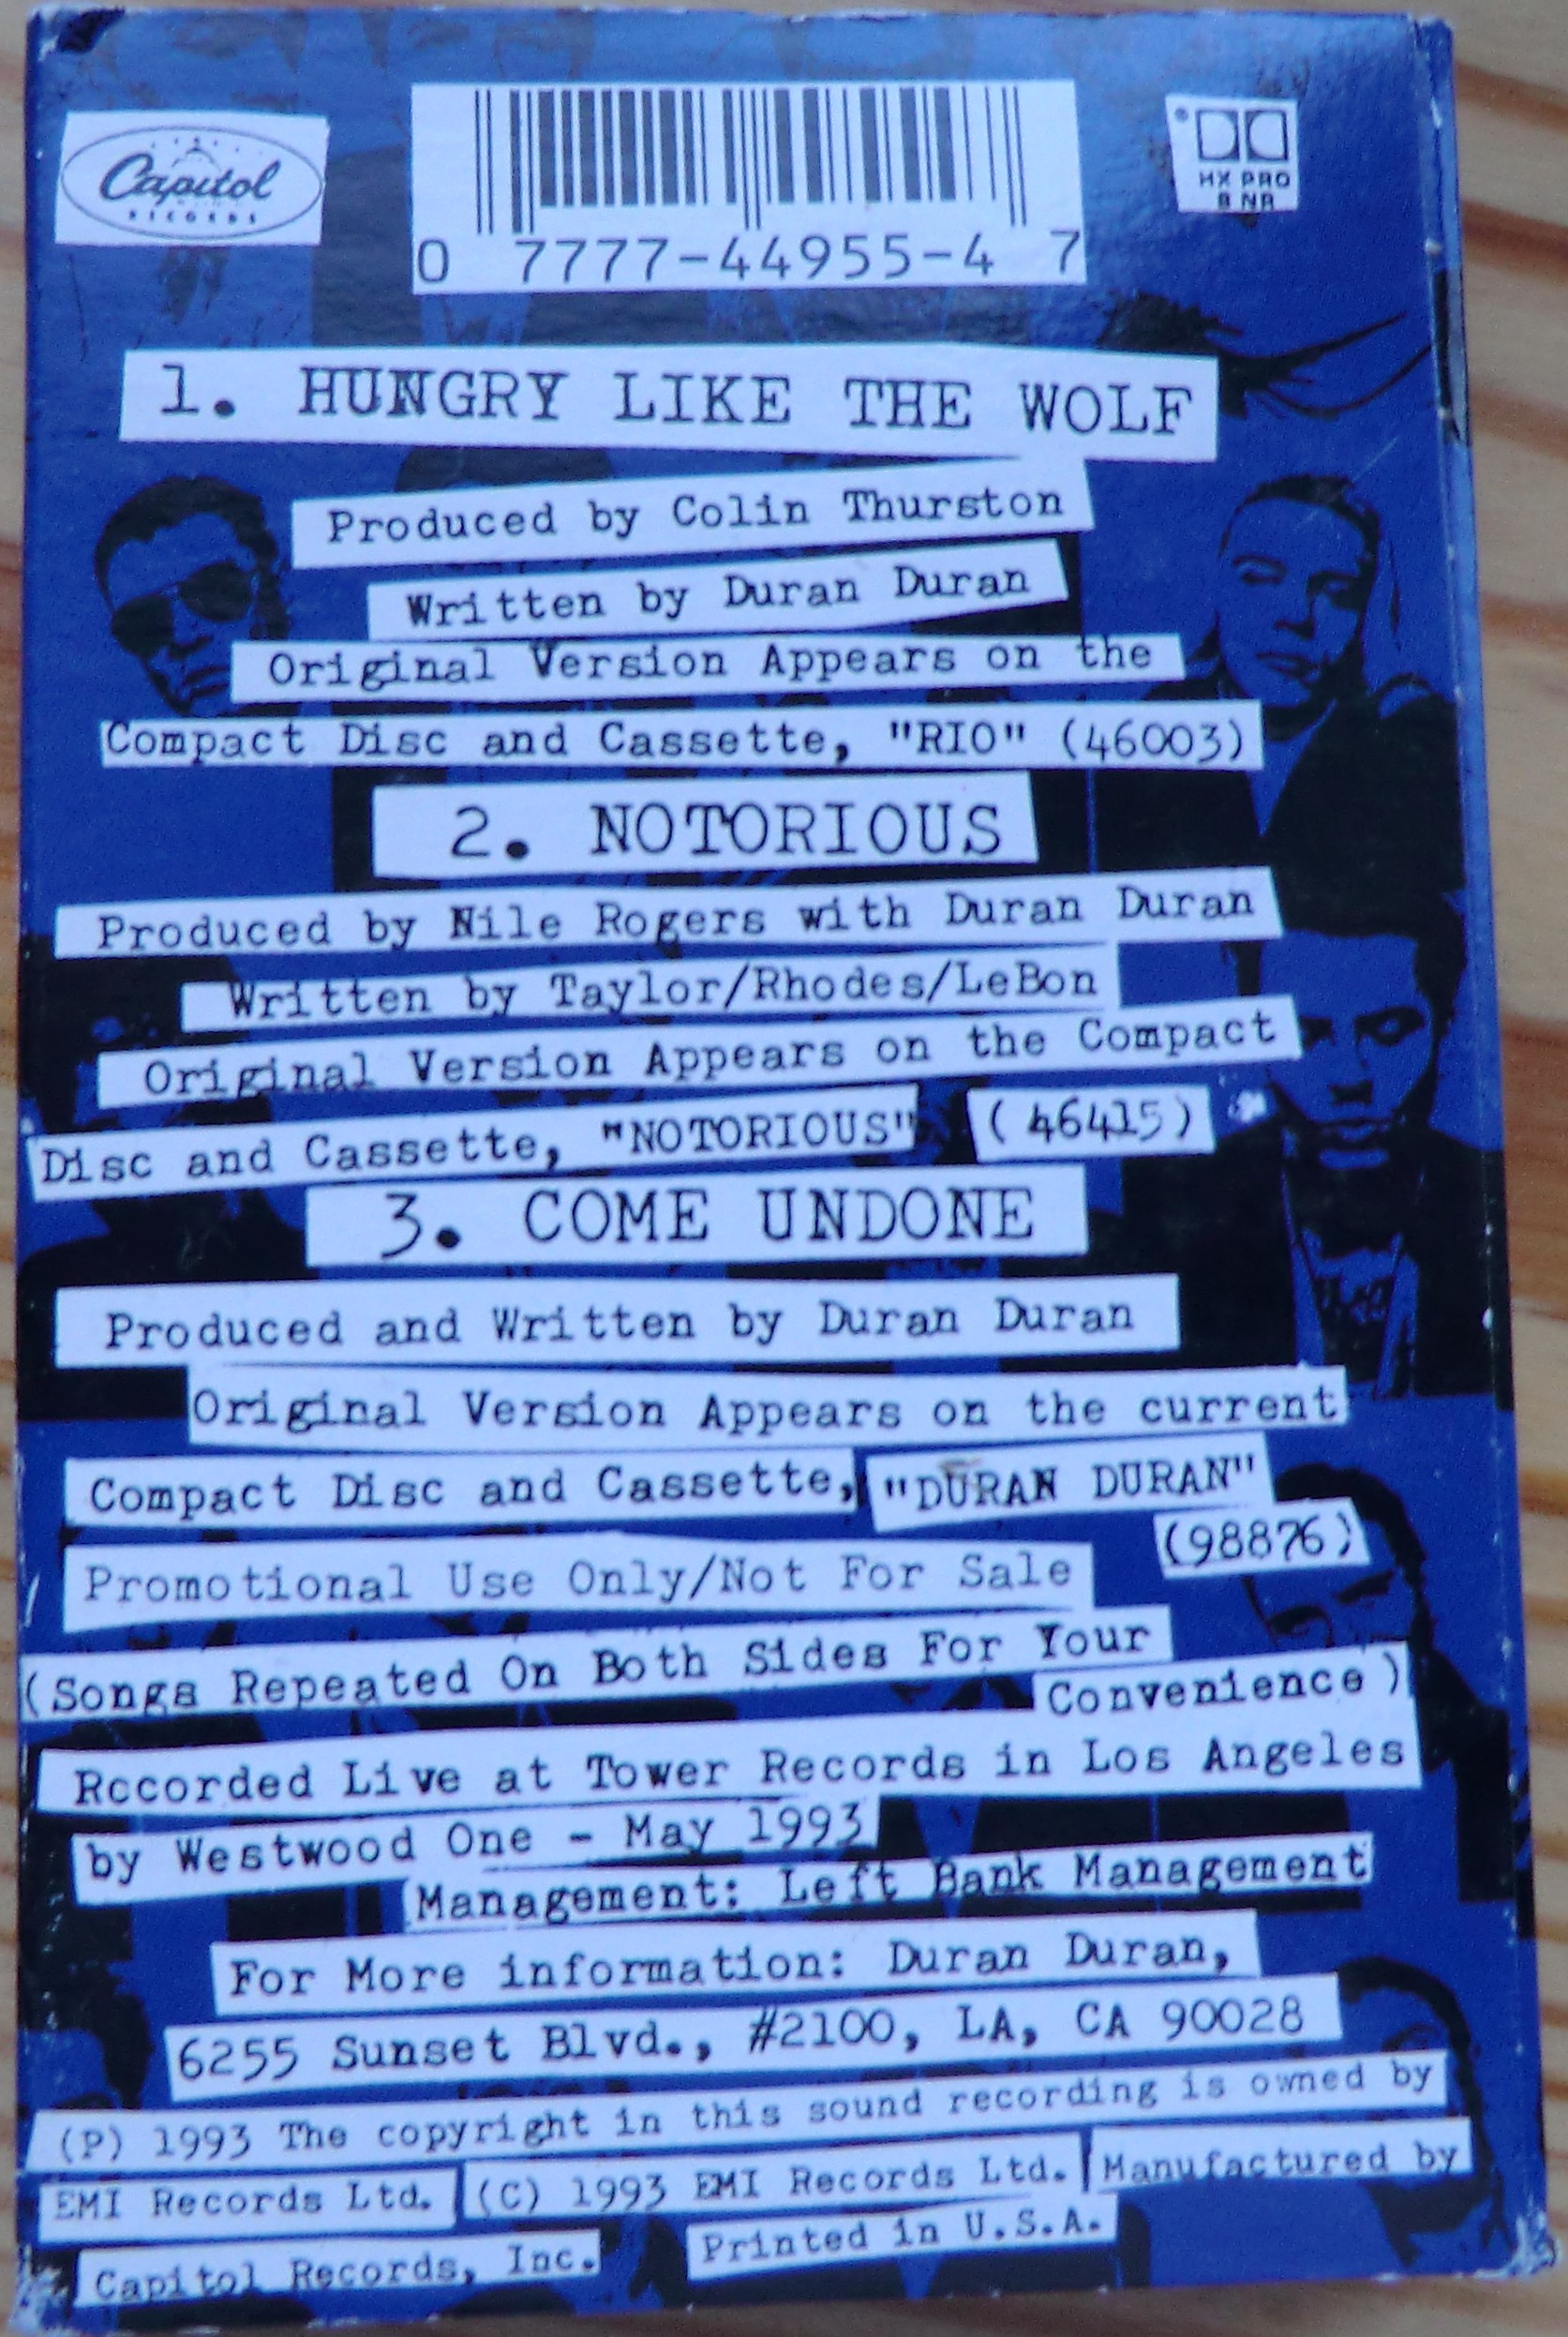 Capitol
RECORDS
0 7777-44955-4 7
HX PRO
B NR
1. HUNGRY LIKE THE WOLF
Produced by Colin Thurston
Written by Duran Duran
Original Version Appears on the
Compact Disc and Cassette, "RIO" (46003)
2. NOTORIOUS
Produced by Nile Rogers with Duran Duran
Written by Taylor/Rhodes/LeBon
Original Version Appears on the Compact
Disc and Cassette, "NOTORIOUS" (46415)
3. COME UNDONE
Produced and Written by Duran Duran
Original Version Appears on the current
Compact Disc and Cassette, "DURAN DURAN"
(98876)
Promotional Use Only/Not For Sale
(Songs Repeated On Both Sides For Your
Convenience)
Rccorded Live at Tower Records in Los Angeles
by Westwood One - May 1993
Management: Left Bank Management
For More information: Duran Duran,
6255 Sunset Blvd., #2100, LA, CA 90028
(P) 1993 The copyright in this sound recording is owned by
EMI Records Ltd. (C) 1993 EMI Records Ltd. Manufactured by
Capitol Records, Inc. Printed in U.S.A.